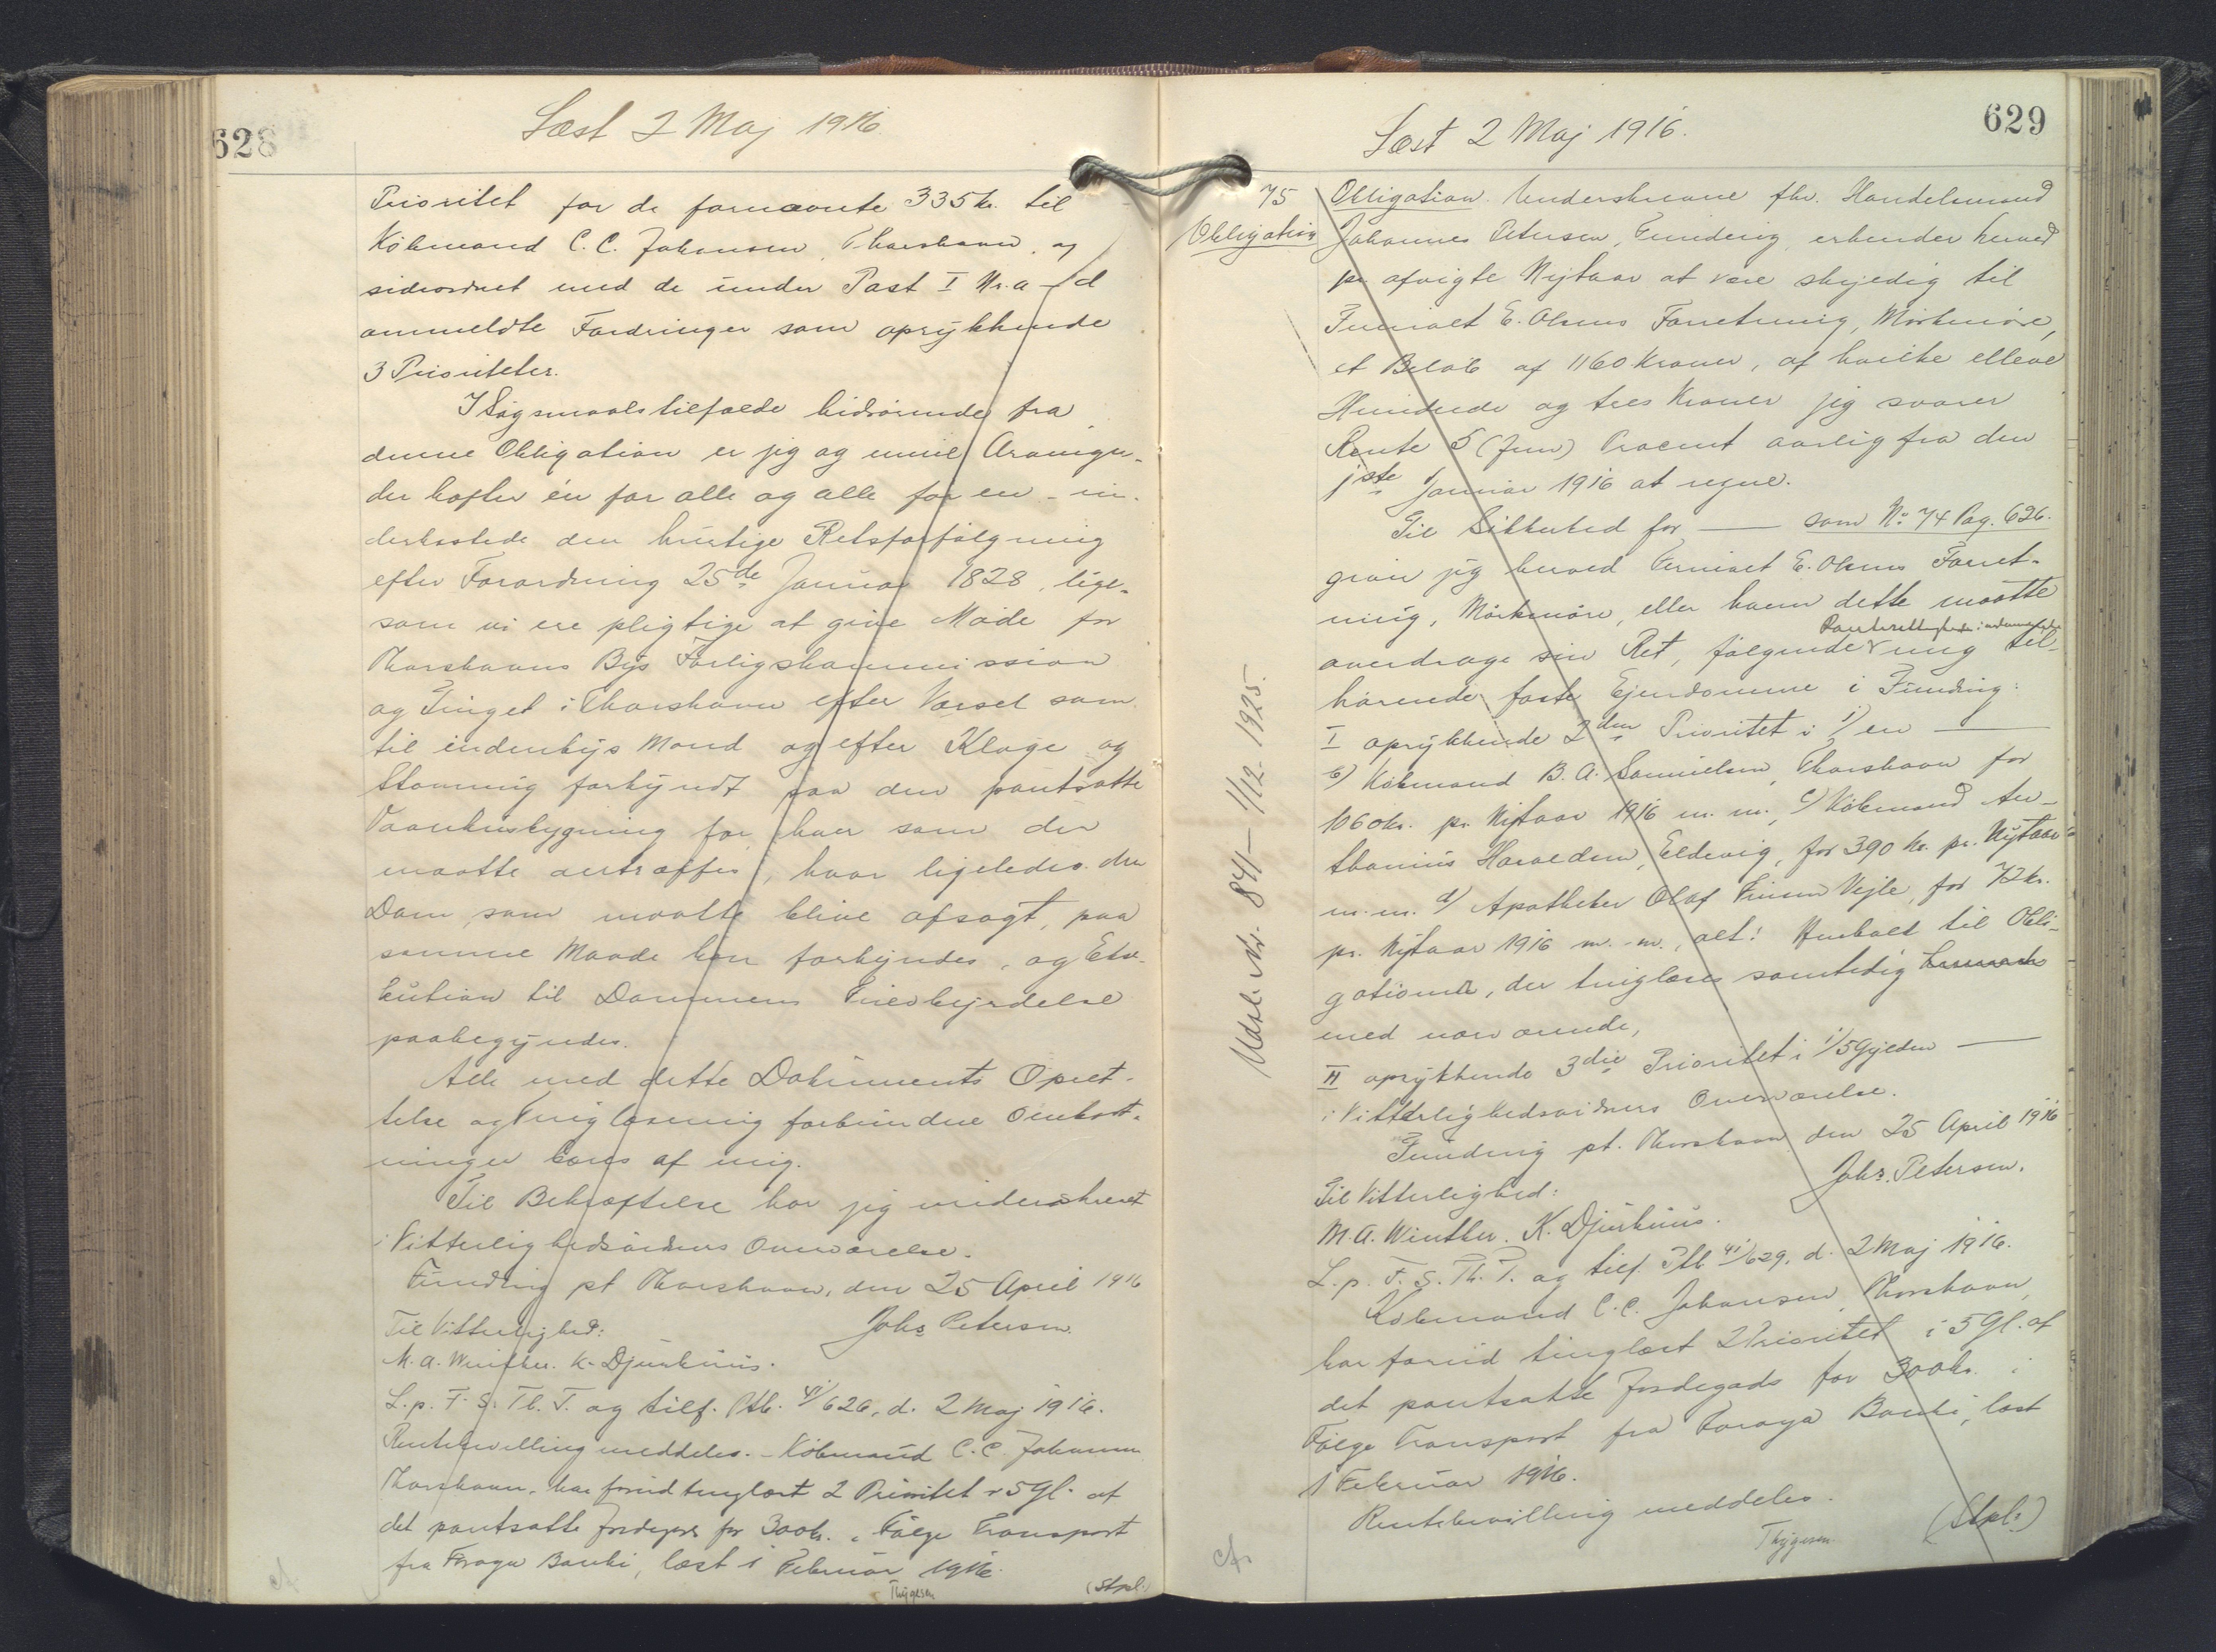 628
Læst 2 Maj 1916.
Prioritet for de fornævnte 335 kr. til
Købmand C. C. Johansen, Thorshavn, og
sideordnet med de under Post I Nr. a - d
anmeldte Fordringer som oprykkende
3 Prioriteter.
I Søgsmaalstilfælde hidrørende fra
denne Obligation er jeg og mine Arvinger,
der hæfter én for alle og alle for en - un-
derkastede den hurtige Retsforfølgning
efter Forordning 25de Januar 1828, lige-
som vi ere pligtige at give Møde for
Thorshavns Bys Forligskommission
og Tinget i Thorshavn efter Varsel som
til indenbys Mand og efter Klage og
Stævning forkyndt paa den pantsatte
Vaanhusbygning for hver som der
maatte antræffes, hvor ligeledes den
Dom, som maatte blive afsagt, paa
samme Maade kan forkyndes, og Exe-
kution til Dommens Fuldbyrdelse
paabegyndes.
Alle med dette Dokuments Opret-
telse og Tinglæsning forbundne Omkost-
ninger bæres af mig.
Til Bekræftelse har jeg underskrevet
i Vitterlighedsvidners Overværelse.
Funding pt Thorshavn, den 25 April 1916
Til Vitterlighed: Johs Petersen.
M. A. Winther. K. Djurhuus.
L. p. F. S. Th. T. og tilf. Ptb. 41/626, d. 2 Maj 1916.
Rentebevilling meddeles. - Købmand C. C. Johansen
Thorshavn, har forud tinglæst 2 Prioritet i 5 Gl. af
det pantsatte Jordegods for 300 kr. i Følge Transport
fra Føroya Banki, læst 1 Februar 1916.
Thygesen (Stpl.)
629
Læst 2 Maj 1916.
75
Obligation
Udsl. Nr. 841 - 1/12. 1925.
Obligation. Underskrevne fhv. Handelsmand
Johannes Petersen, Funding, erkender herved
pr. afvigte Nytaar at være skyldig til
Firmaet E. Olsens Forretning, Mørkøre,
et Beløb af 1160 Kroner, af hvilke elleve
Hundrede og tres Kroner jeg svarer
Rente 5 (fem) Procent aarlig fra den
1ste Januar 1916 at regne.
Til Sikkerhed for — som No 74 Pag. 626.
giver jeg herved Firmaet E. Olsens Forret-
ning, Mørkøre, eller hvem dette maatte
Panterettigheder i nedennævnte
overdrage sin Ret, følgende mig til-
hørende faste Ejendomme i Funding:
I oprykkende 2den Prioritet i 1/ en —
b) Købmand B. A. Samuelsen, Thorshavn for
1060 kr. pr. Nytaar 1916 m. m., c) Købmand An-
thonius Haraldsen, Eldevig, for 390 kr. pr. Nytaar
m. m. d) Apotheker Olaf Finsen Vejle, for 72 kr.
pr. Nytaar 1916 m. m., alt i Henhold til Obli-
gationer, der tinglæses samtidig
med nærværende,
II oprykkende 3die Prioritet i 1/ 5 Gylden —
i Vitterlighedsvidners Overværelse.
Funding pt. Thorshavn den 25 April 1916
Til Vitterlighed: Johs. Petersen.
M. A. Winther. K. Djurhuus.
L. p. F. S. Th. T. og tilf. Ptb 41/629, d. 2 Maj 1916.
Købmand C. C. Johansen, Thorshavn,
har forud tinglæst 2 Prioritet i 5 Gl. af
det pantsatte Jordegods for 300 kr. i
Følge Transport fra Føroya Banki, læst
1 Februar 1916.
Rentebevilling meddeles.
Thygesen. (Stpl.)